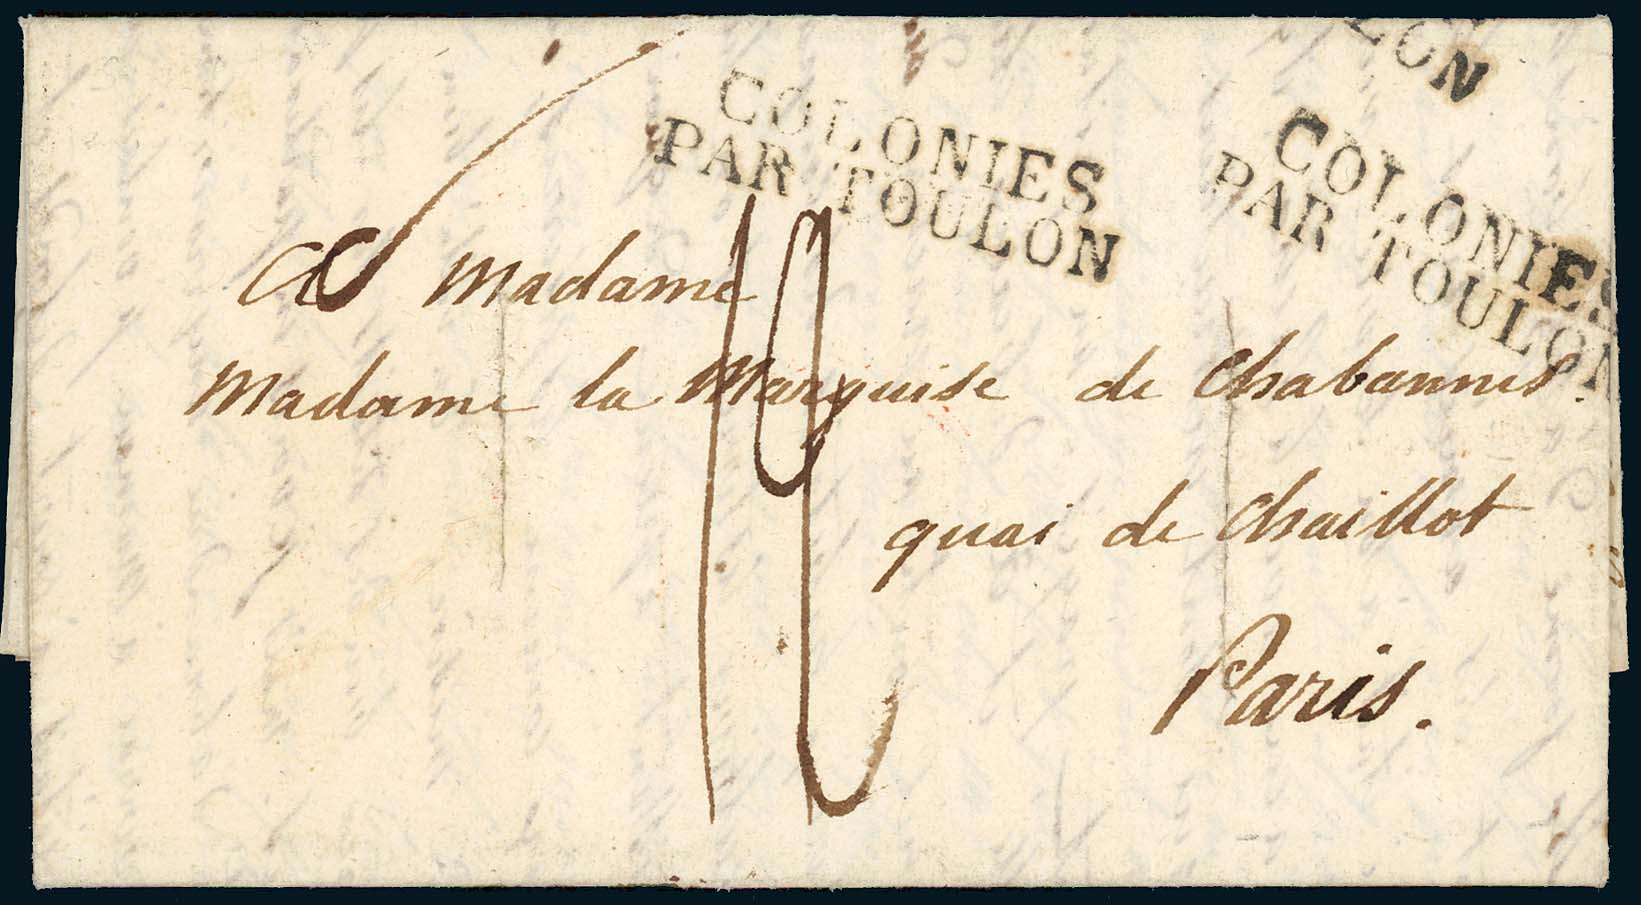 LON
COLONIES
PAR TOULON
COLONIES
PAR TOULON
A Madame
Madame la Marquise de Chabannes.
quai de Chaillot
Paris.